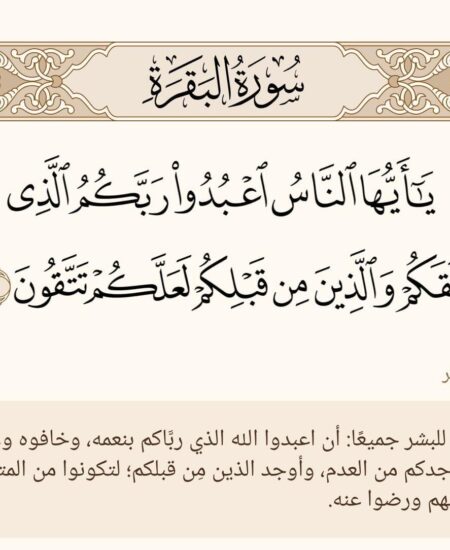 سُورَةُ البَقَرَةِ
يَٰٓأَيُّهَا ٱلنَّاسُ ٱعۡبُدُواْ رَبَّكُمُ ٱلَّذِي
وَٱلَّذِينَ مِن قَبۡلِكُمۡ لَعَلَّكُمۡ تَتَّقُونَ
للبشر جميعًا: أن اعبدوا الله الذي ربَّاكم بنعمه، وخافوه
من العدم، وأوجد الذين مِن قبلكم؛ لتكونوا من
ورضوا عنه.